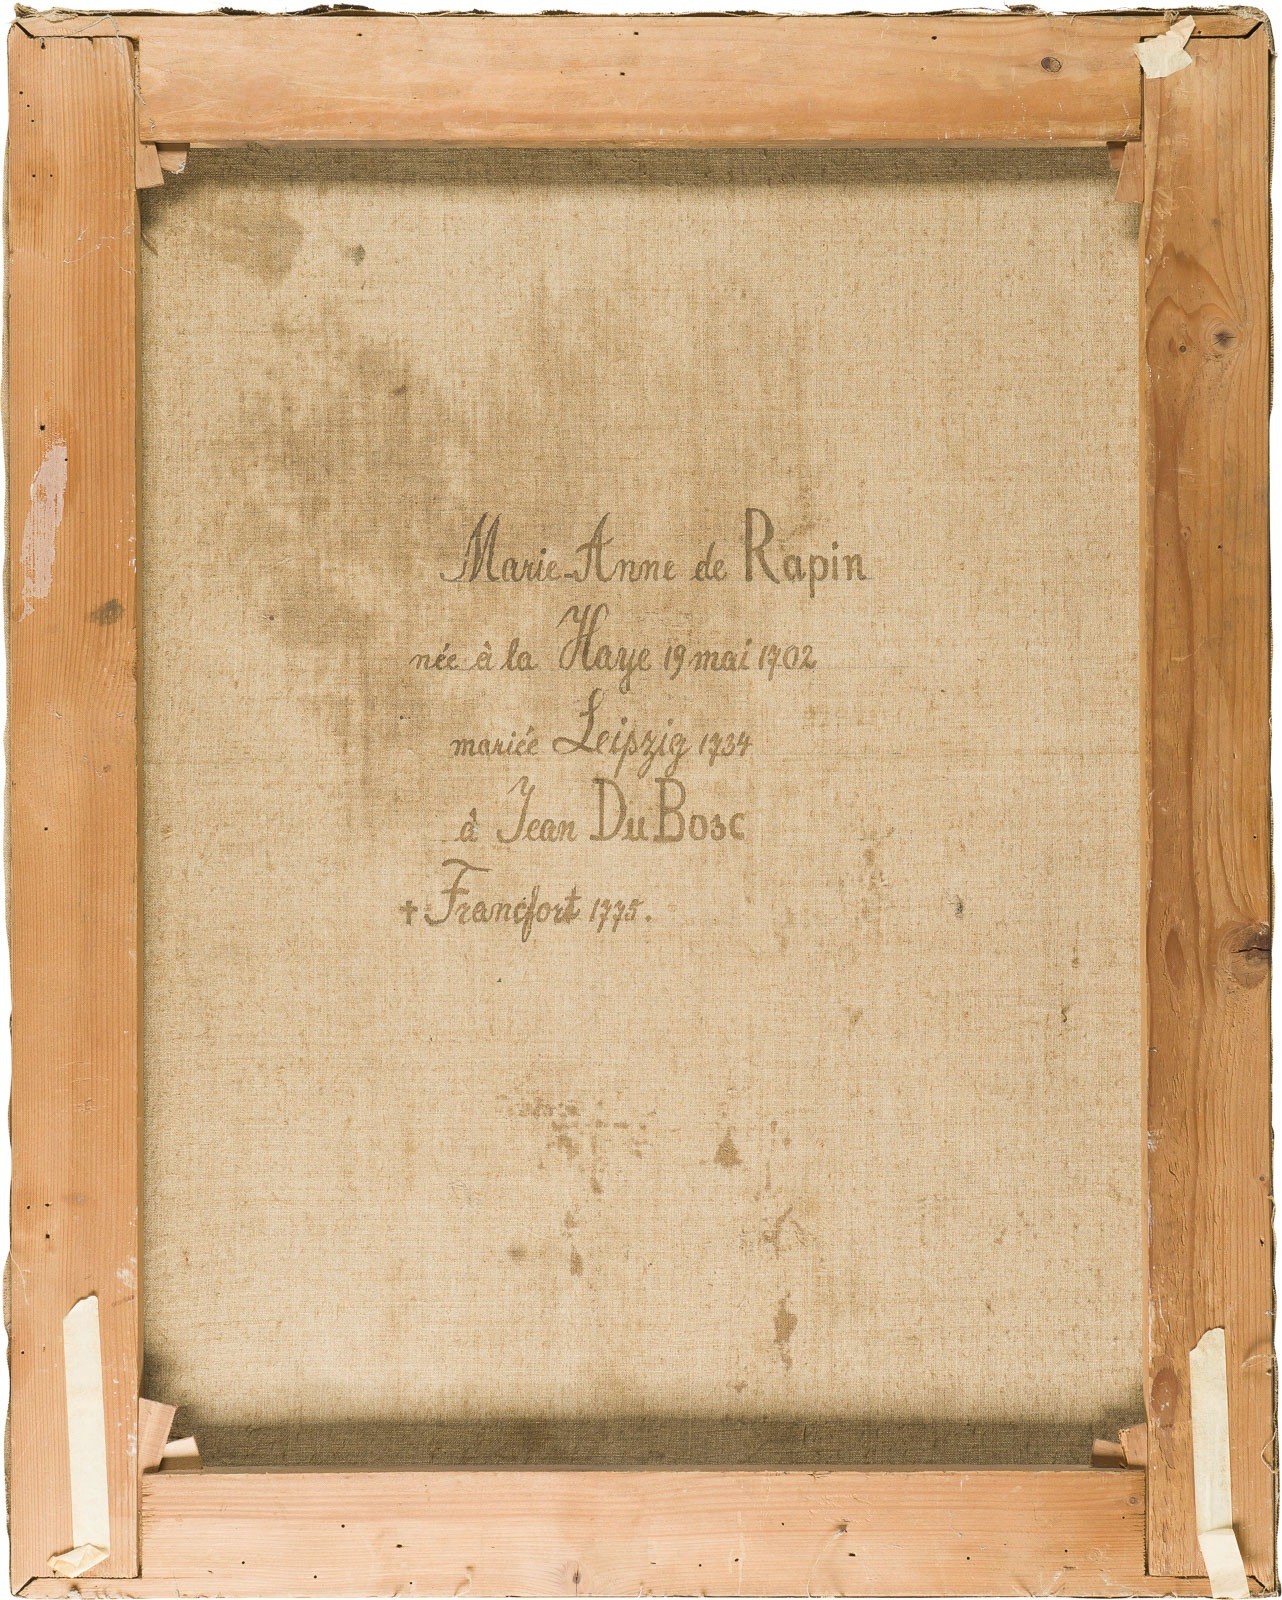 Marie-Anne de Rapin
née à la Haye 19 mai 1702
mariée Leipzig 1734
à Jean Du Bosc
+ Francfort 1775.